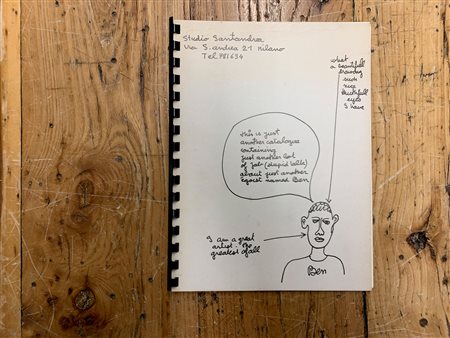 Studio Santandrea
Via S. andrea 21 Milano
Tel 781634
what
a beautifull
drawing
such
nice
eyes
I have
this is just
another catalogue
containing
just another lot
of (stupid talk)
about just another
egoist named Ben
I am a great
artist
greatest of all
Ben